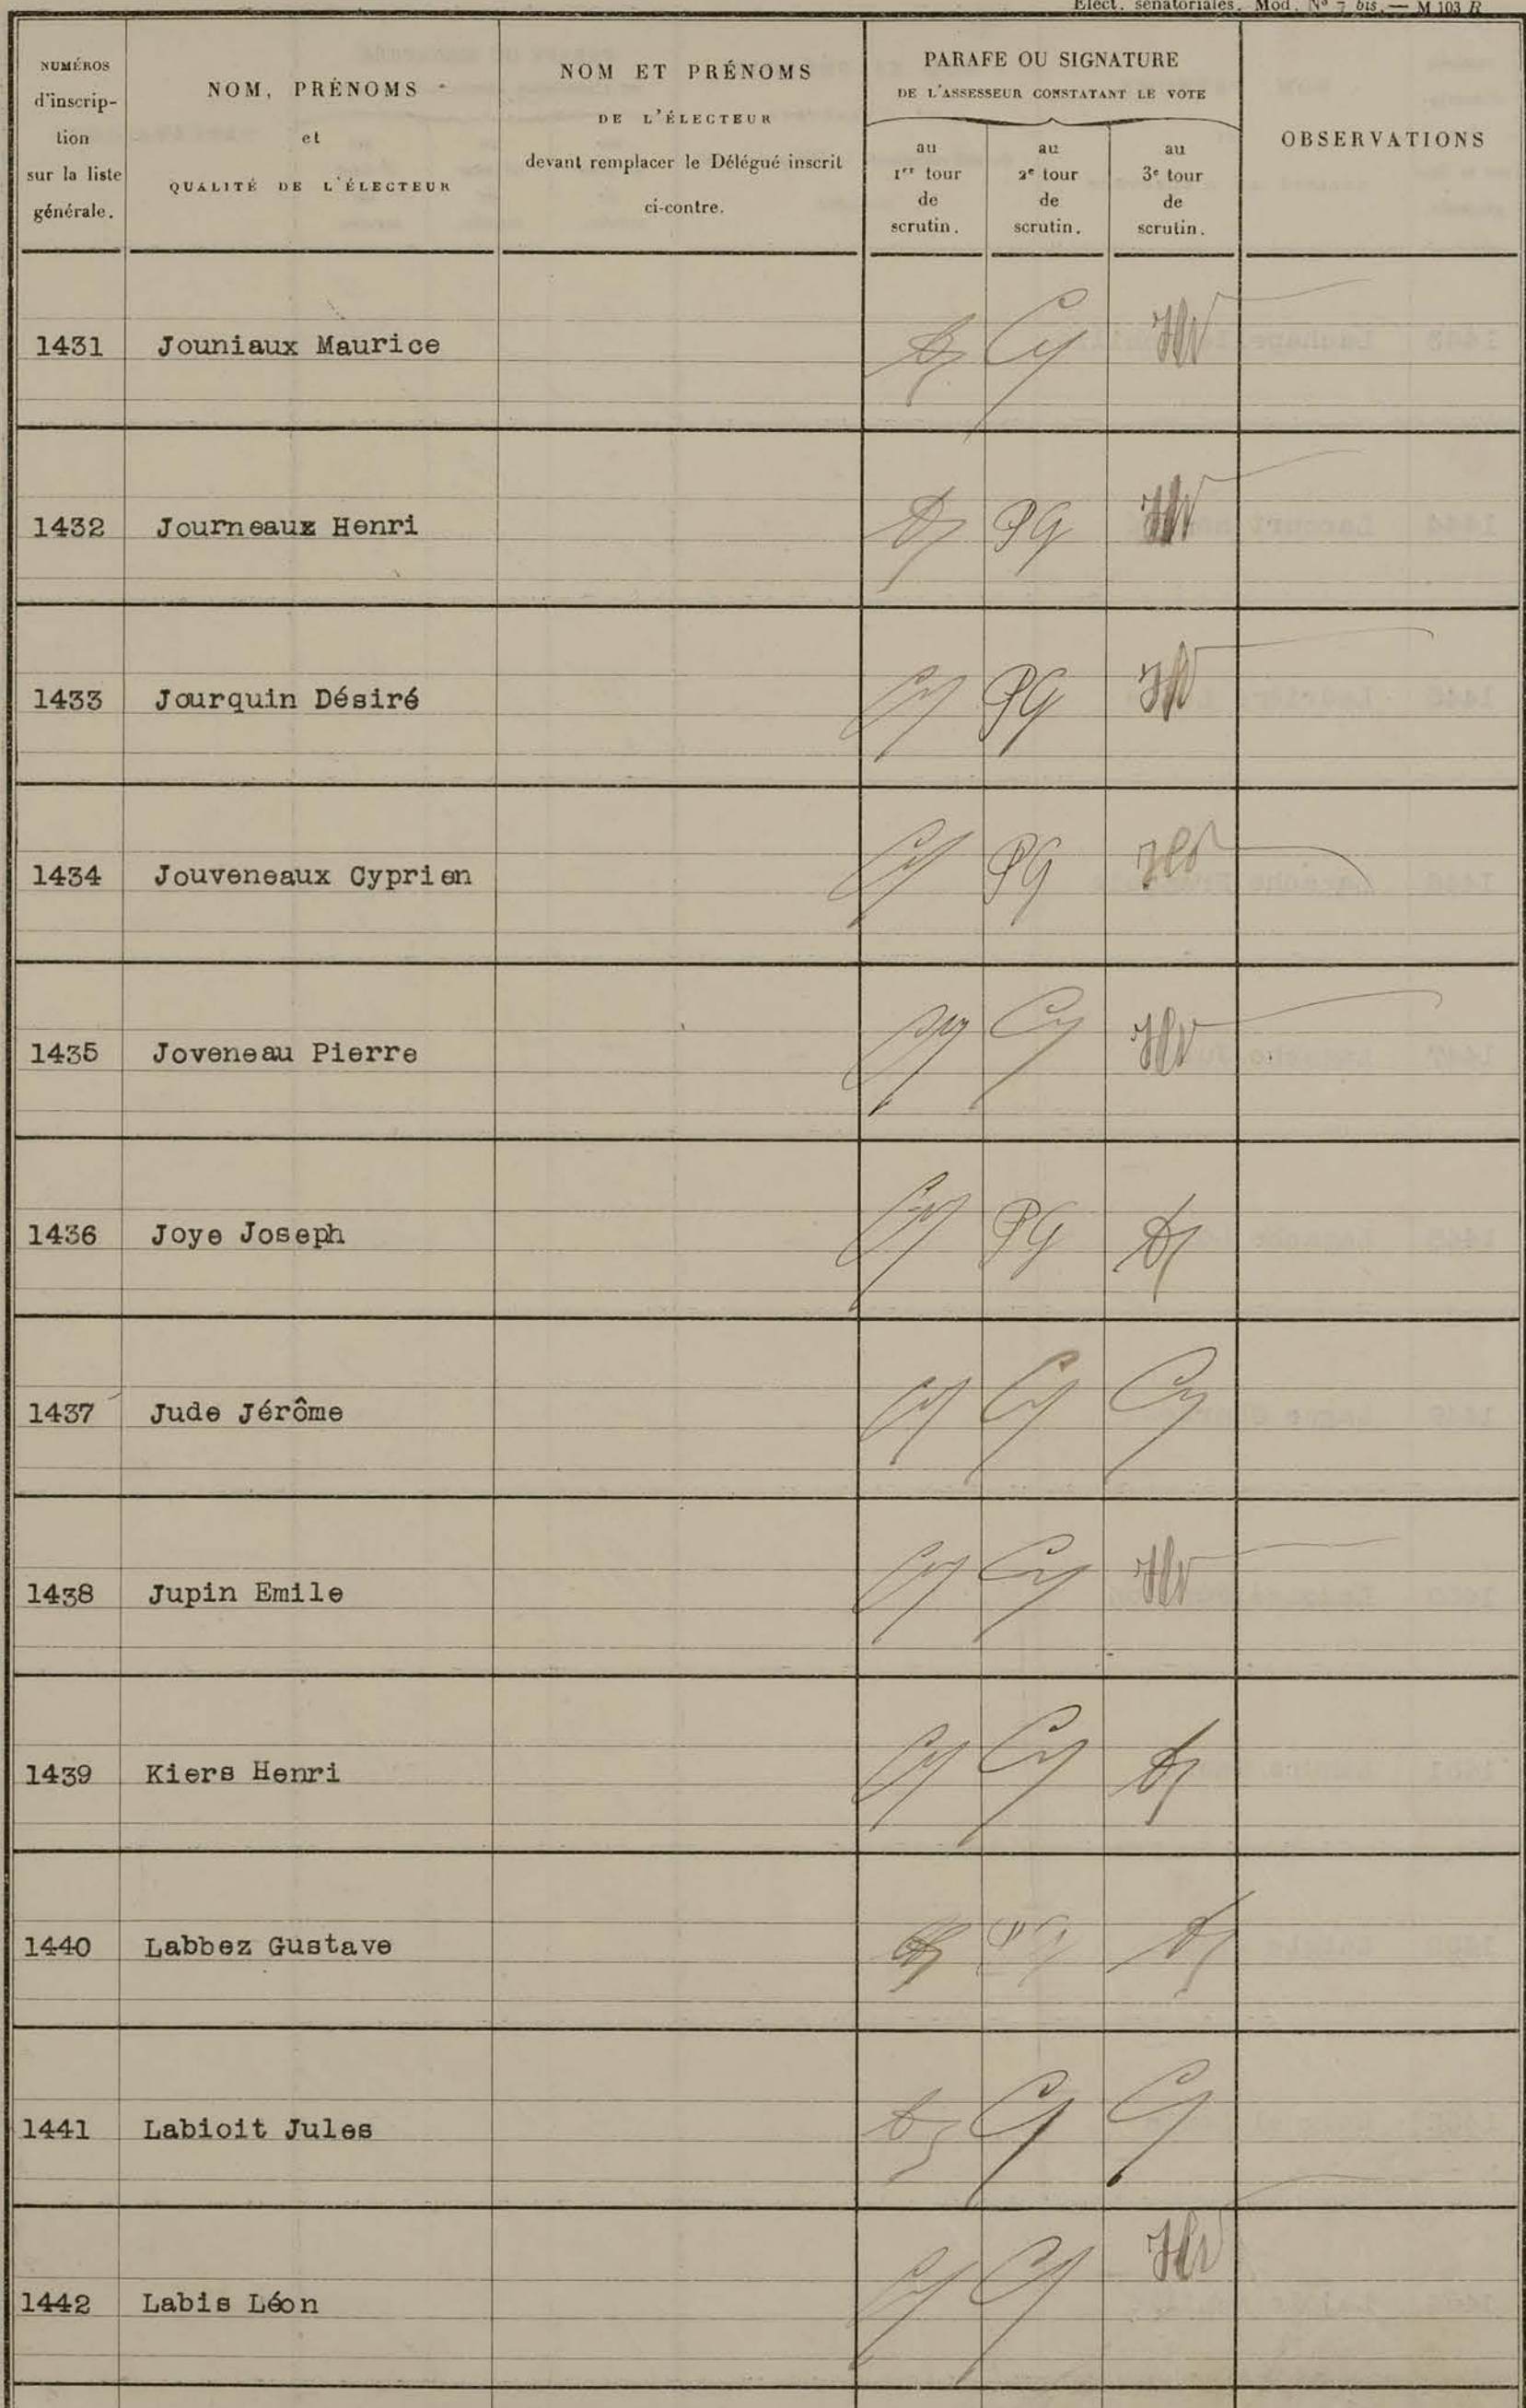 Elect. sénatoriales. Mod. N° 7 bis. — M 103 R
NUMÉROS
d'inscrip-
tion
sur la liste
générale.
NOM, PRÉNOMS
et
QUALITÉ DE L'ÉLECTEUR
NOM ET PRÉNOMS
DE L'ÉLECTEUR
devant remplacer le Délégué inscrit
ci-contre.
PARAFE OU SIGNATURE
DE L'ASSESSEUR CONSTATANT LE VOTE
au
1er tour
de
scrutin.
au
2e tour
de
scrutin.
au
3e tour
de
scrutin.
OBSERVATIONS
1431 Jouniaux Maurice
1432 Journeaux Henri PG
1433 Jourquin Désiré PG
1434 Jouveneaux Cyprien PG
1435 Joveneau Pierre
1436 Joye Joseph PG
1437 Jude Jérôme
1438 Jupin Emile
1439 Kiers Henri
1440 Labbez Gustave PG
1441 Labioit Jules
1442 Labis Léon